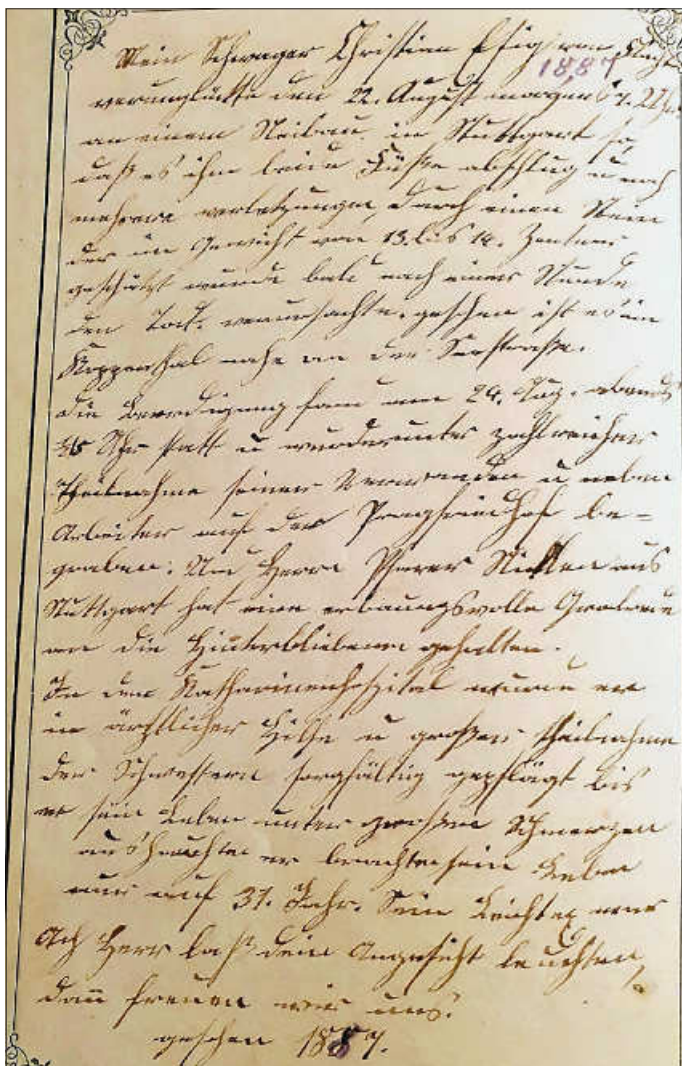 Mein Schwager Christian Essig von Flacht
1887
verunglückte den 22. August morgens 7. Uhr
an einem Neubau in Stuttgart so,
daß es ihm beide Füße abschlug u noch
mehrere verletzungen, durch einen Stein
der im Gewicht von 13. bis 14. Zentner
geschätzt wurde bald nach einer Stunde
den Tod. verursachte. geschen ist es im
Koppenthal nahe an der Seestraße.
die Beerdigung fand am 24. Aug. abends
Uhr statt u wurde unter zahlreicher
Theilnahme seiner Verwanden u neben
Arbeiter auf dem Pragfriedhof be=
graben. Und Herrn Pfarer aus
Stuttgart hat eine erbauungsvolle Grabrede
an die Hinterbliebenen gehalten.
In dem Katharinenhospital wurde er
in ärztlicher Hilfe u großer theilnahme
der Schwestern sorgfältig gepflägt bis
er sein Leben unter großen Schmerzen
aushauchte er brachte sein Leben
nur auf 31. Jahr. Sein Leichtex war
Ach Herr laß dein Angesicht leuchten,
dann freuen wir uns.
geschen 1887.